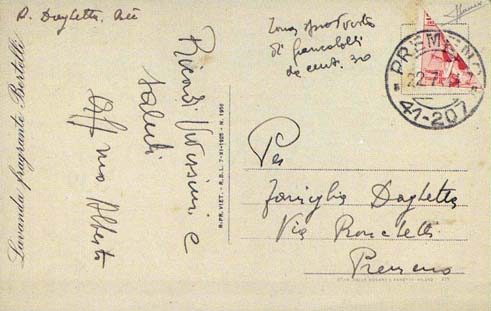 A. Daghetta. Nèe
Lavanda fragrante Bertelli
Ricordi Vivissimi e
saluti
Aff mo Alberto
RIPR. VIET. - R.D.L. 7-XI-1925 - N. 1950
Zona sprovvista
di francobolli
da cent. 30
PREMENO
22.7
41-207
Per
famiglia Daghetta
Via
Premeno